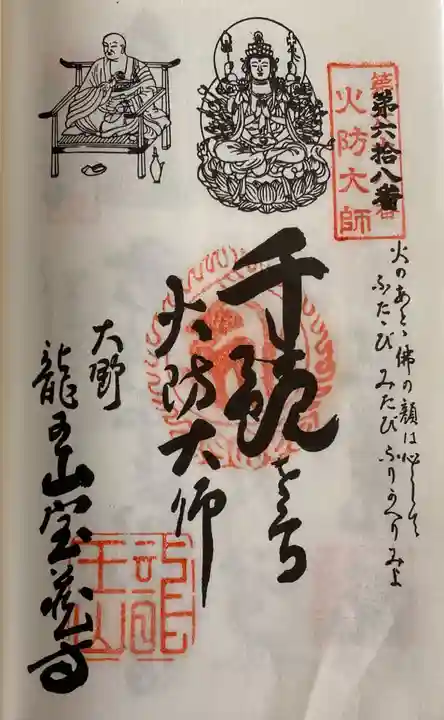 第六拾八番
火防大師
火のあとゝ佛の顔は心して
ふたゝびみたびふりかへりみよ
千観をん
火防大師
大野
龍王山宝蔵寺
龍王山